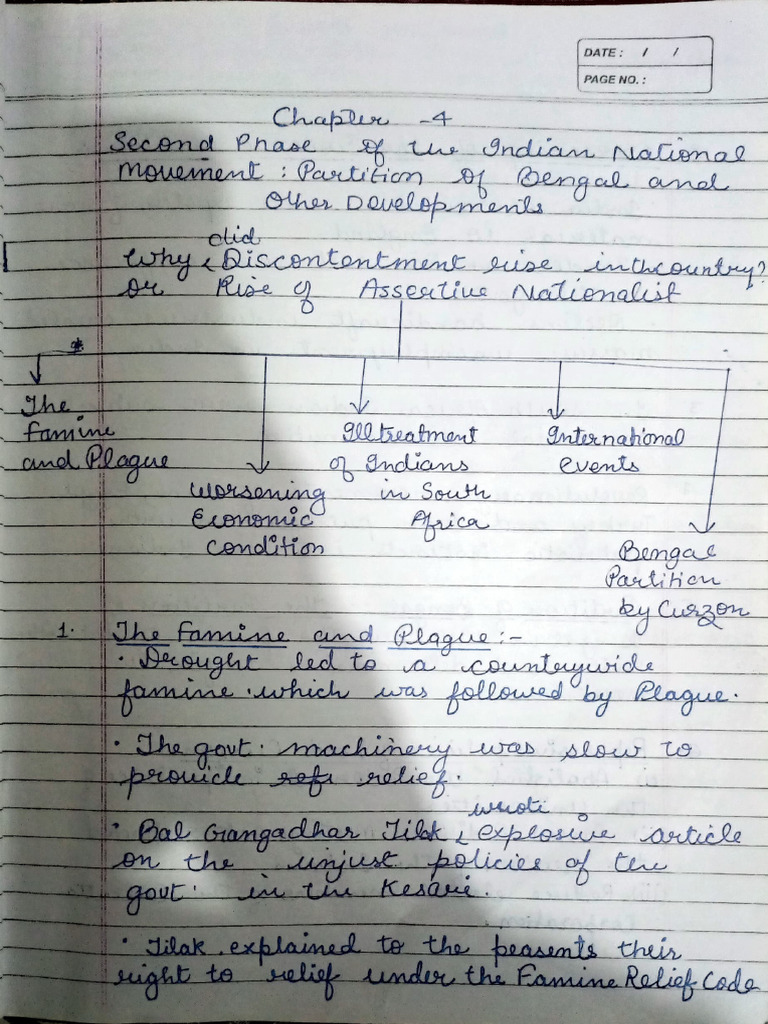 DATE : / /
PAGE NO. :
Chapter -4
Second Phase of the Indian National
Movement : Partition of Bengal and
Other Developments
did
Why ‹ Discontentment rise in the country?
or Rise of Assertive Nationalist
The
famine
and Plague
Worsening
Economic
Condition
Illtreatment
of Indians
in South
Africa
International
events
Bengal
Partition
by Curzon
1. The Famine and Plague :-
• Drought led to a countrywide
famine . which was followed by Plague.
• The govt. machinery was slow to
provide relief.
wrote
• Bal Gangadhar Tilak ‹ explosive article
on the unjust policies of the
govt. in the Kesari.
• Tilak . explained to the peasents their
right to relief under the Famine Relief Code